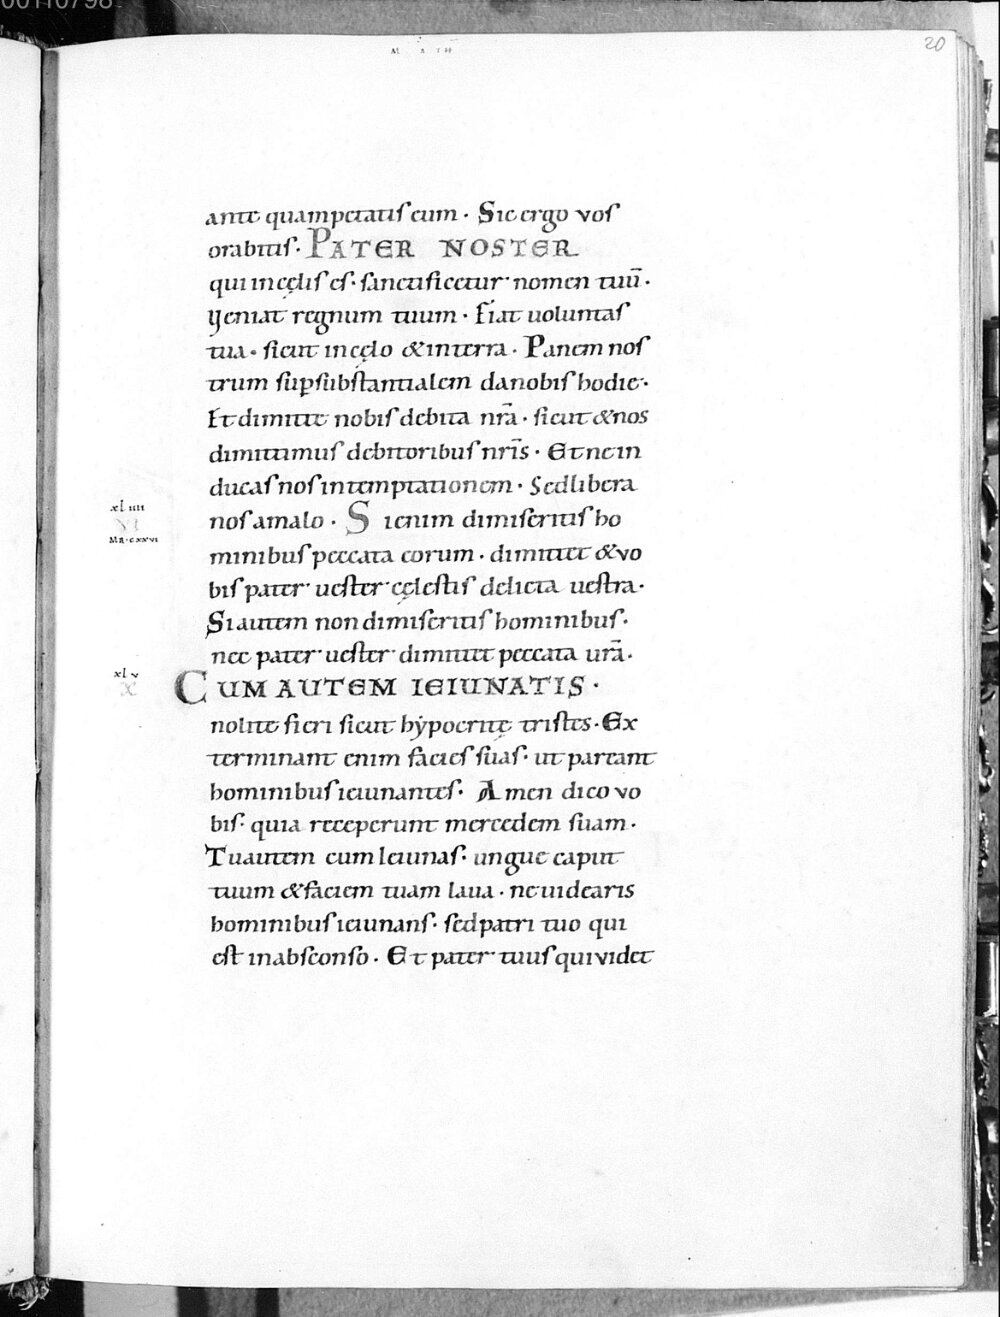 00110798
M A TH
20
ante quam petatis eum · Sic ergo vos
orabitis · PATER NOSTER
qui in cęlis es · sanctificetur nomen tuū ·
Veniat regnum tuum · Fiat uoluntas
tua · sicut in cęlo & in terra · Panem nos
trum sup̲substantialem da nobis hodie ·
Et dimitte nobis debita nr̄a · sicut & nos
dimittimus debitoribus nr̄is · Et ne in
ducas nos in temptationem · Sed libera
xl iiii
VI
MR · CXXVI
nos a malo · Si enim dimiseritis ho
minibus peccata eorum · dimittet & vo
bis pater uester cęlestis delicta uestra ·
Si autem non dimiseritis hominibus ·
nec pater uester dimittet peccata ur̄a ·
xl v
X
CUM AUTEM IEIUNATIS ·
nolite fieri sicut hẏpocritę tristes · Ex
terminant enim facies suas · ut pareant
hominibus ieiunantes · Amen dico vo
bis · quia receperunt mercedem suam ·
Tu autem cum ieiunas · ungue caput
tuum & faciem tuam laua · ne uidearis
hominibus ieiunans · sed patri tuo qui
est in absconso · Et pater tuus qui videt